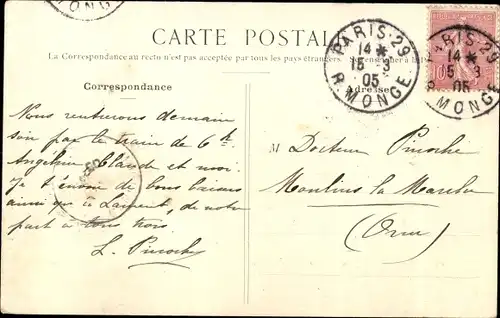 CARTE POSTALE
La Correspondance au recto n'est pas acceptée par tous les pays étrangers.
Correspondance
Adresse
PARIS · 29
14 *
15 - 3
05
R. MONGE
PARIS · 29
14 *
15 3
05
R. MONGE
10
Nous rentrerons demain
soir par le train de 6 h.
Angeline Claude et moi.
Je t'envoie de bons baisers
ainsi qu'à Laurent, de notre
part à tous trois.
L. Pinoche
M Docteur Pinoche
Moulins la Marche
(Orne)